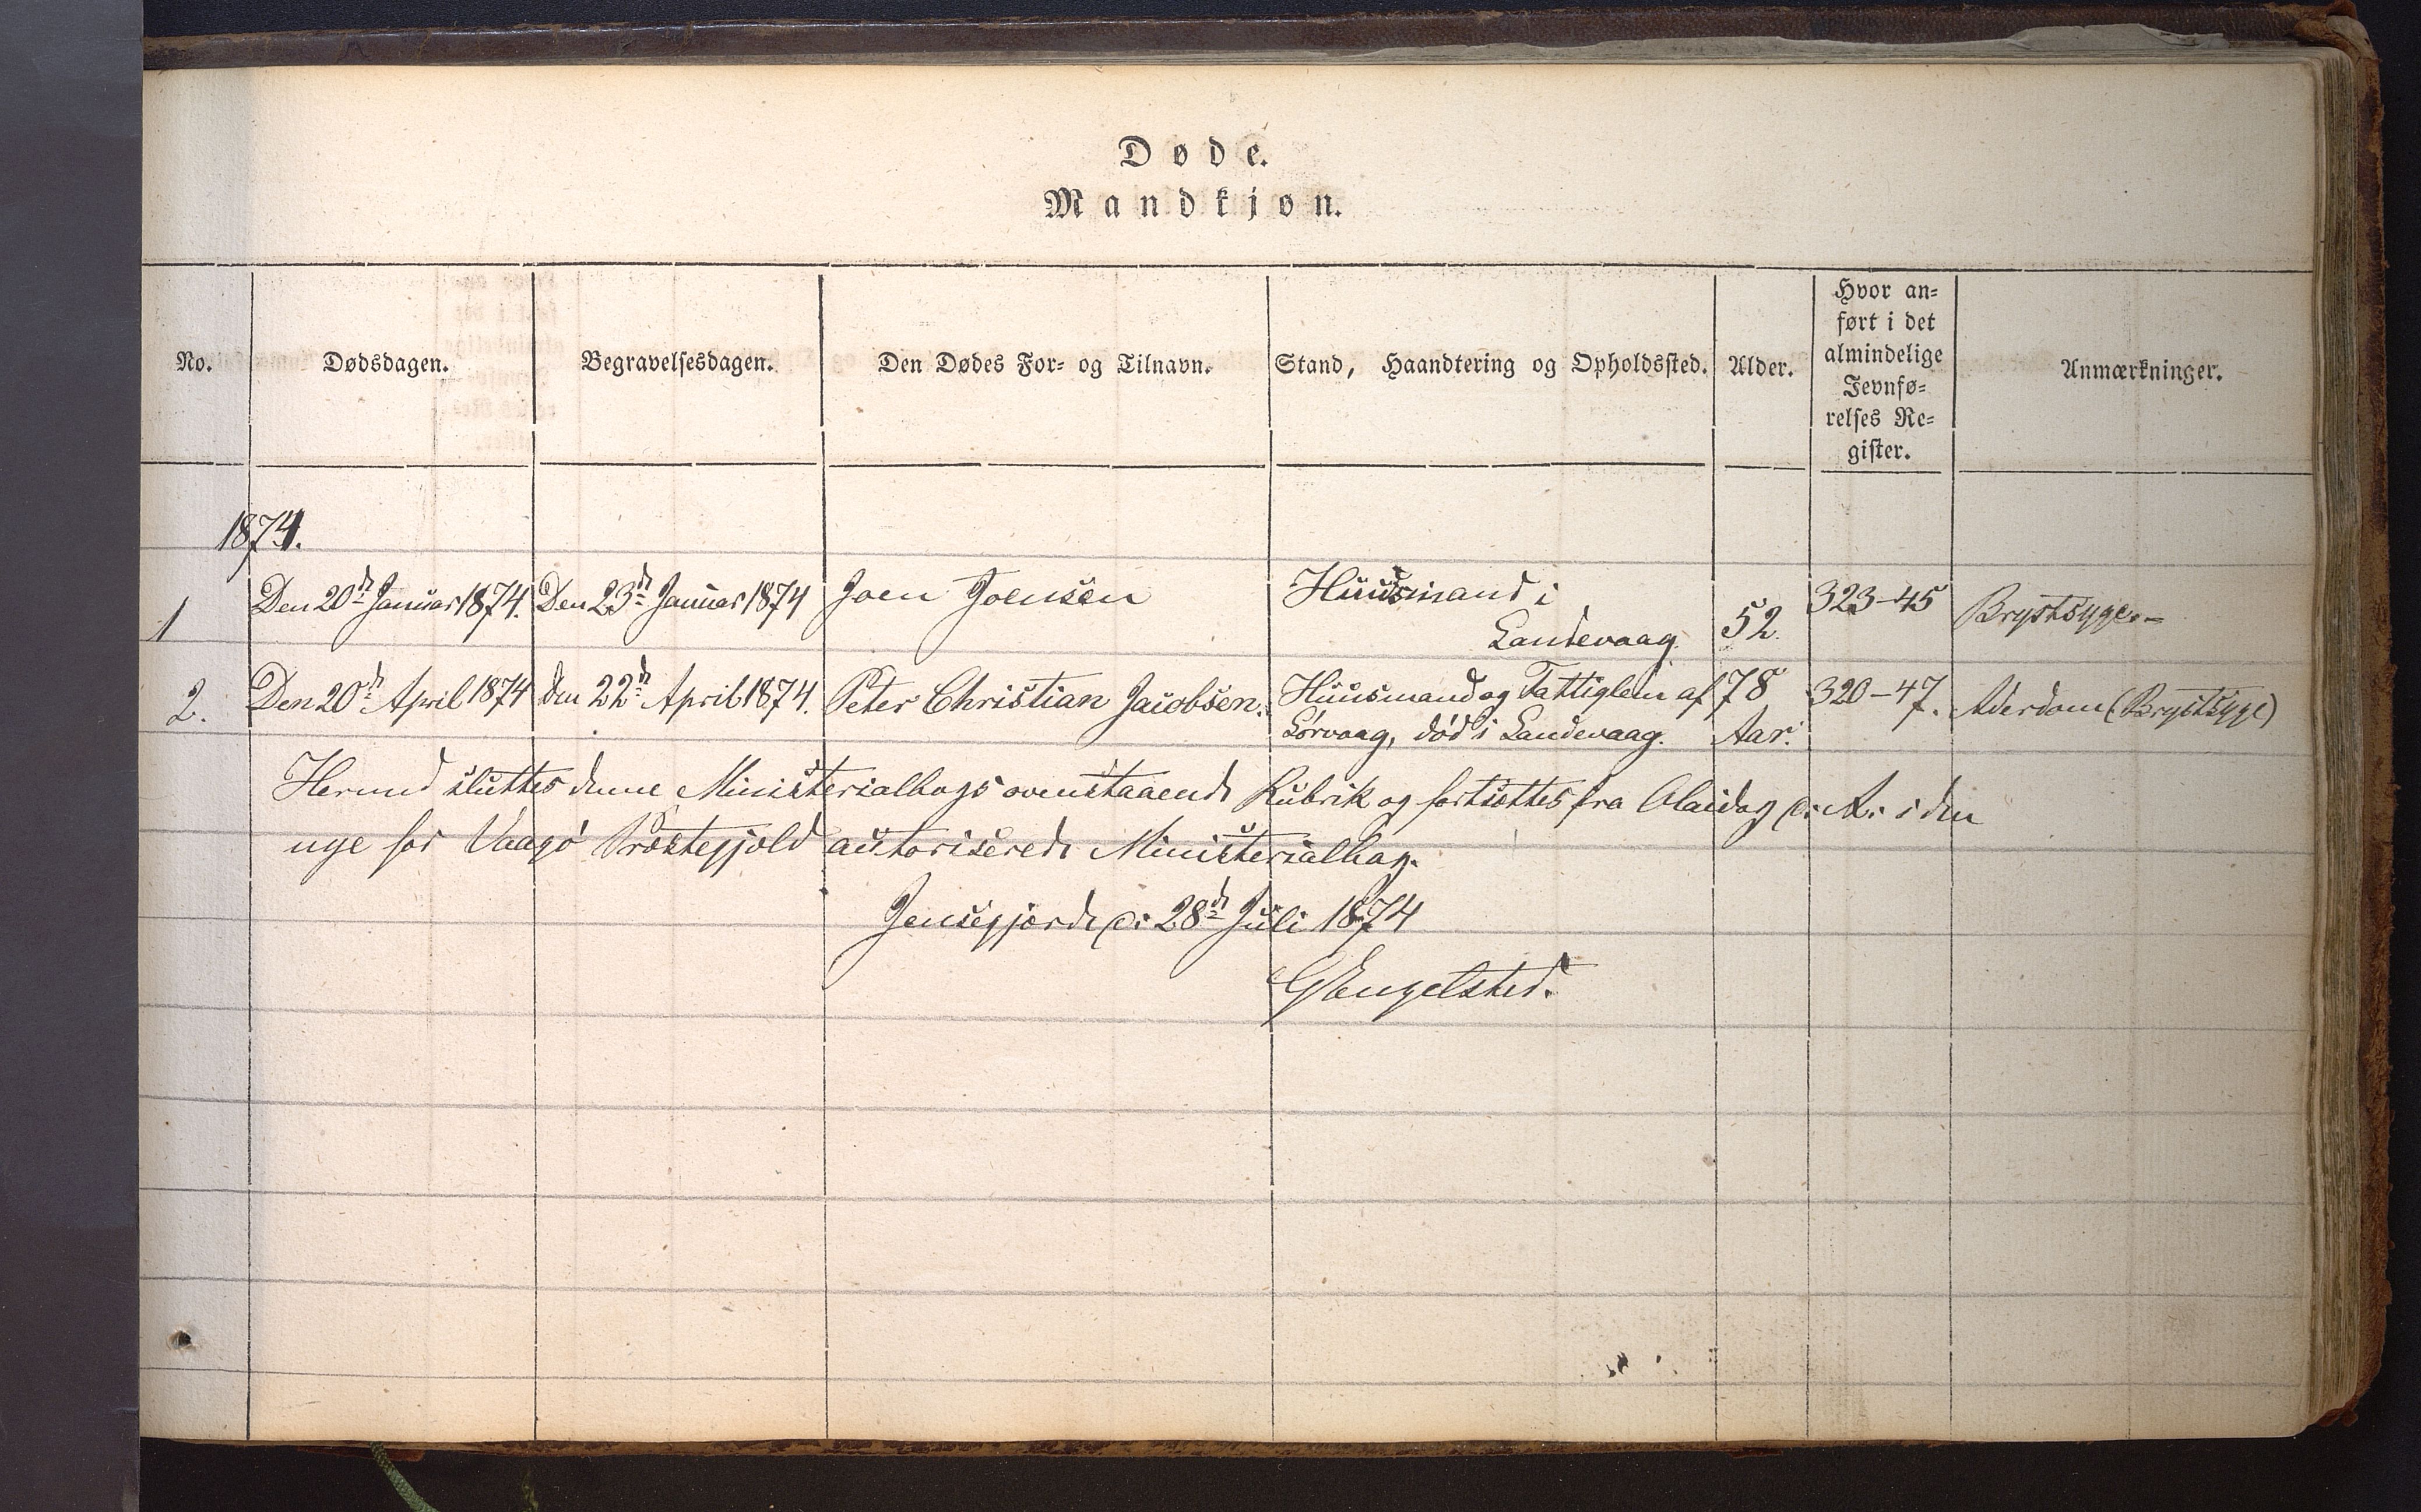 Døde.
Mandkjøn.
No.
Dødsdagen.
Begravelsesdagen.
Den Dødes For- og Tilnavn.
Stand, Haandtering og Opholdssted.
Alder.
Hvor an-
ført i det
almindelige
Jevnfø-
relses Re-
gister.
Anmærkninger.
1874.
1 Den 20d Januar 1874. Den 23d Januar 1874 Joen Joensen Huusmand i 52. 323-45 Brystsyge.-
Sandevaag
2. Den 20d April 1874 den 22d April 1874. Peter Christian Jacobsen. Huusmand og Fattiglem af 78 320-47. Alderdom (Brystsyge)
Sørvaag, død i Sandevaag. Aar.
Hermed sluttes denne Ministerialbogs ovenstaaende Rubrik og fortsættes fra Olaidag d: A: i den
nye for Vaagø Præstegjæld autoriserede Ministerialbog.
Jensegjærde d: 28d Juli 1874
GEngelsted.